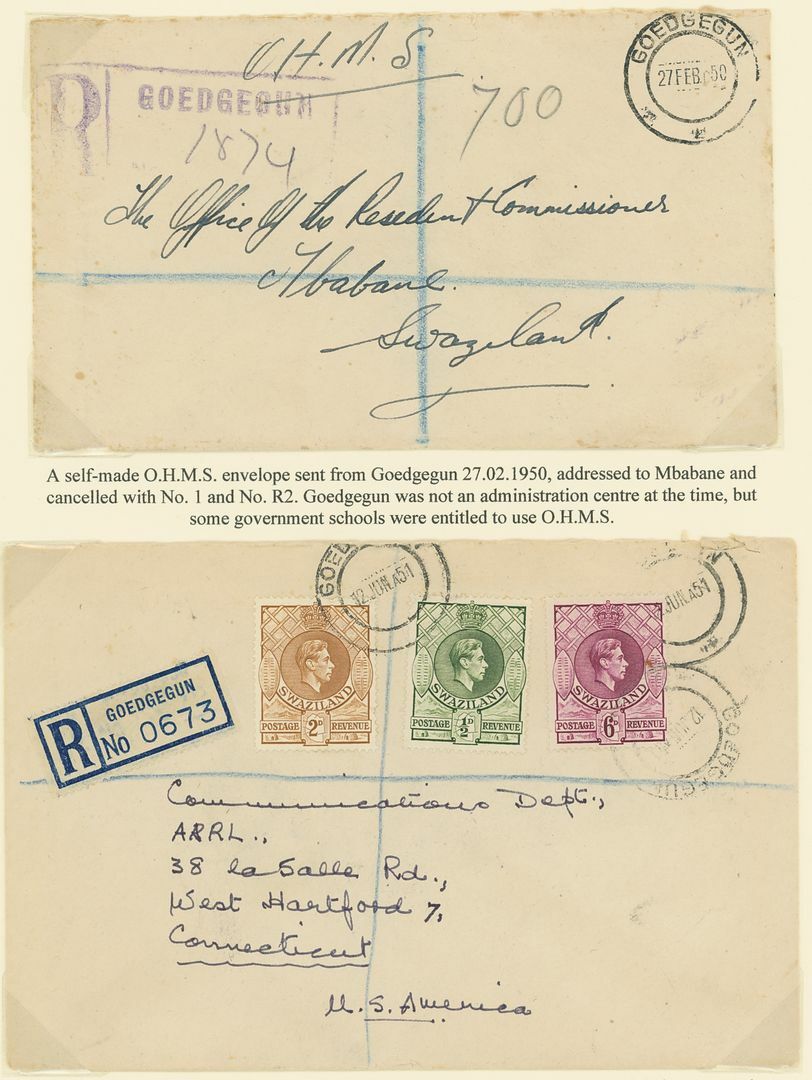 O.H.M.S
GOEDGEGUN
27 FEB 50
R
GOEDGEGUN
1874
700
The Office Of the Resedent Commissioner
Mbabane.
Swaziland.
A self-made O.H.M.S. envelope sent from Goedgegun 27.02.1950, addressed to Mbabane and
cancelled with No. 1 and No. R2. Goedgegun was not an administration centre at the time, but
some government schools were entitled to use O.H.M.S.
GOED
12 JUN.A51
JUN.A51
R
GOEDGEGUN
No 0673
SWAZILAND
POSTAGE 2D REVENUE
SWAZILAND
POSTAGE 1/2D REVENUE
SWAZILAND
POSTAGE 6D REVENUE
Communications Dept.,
ARRL.,
38 la Salle Rd.,
West Hartford 7,
Connecticut
U.S. America